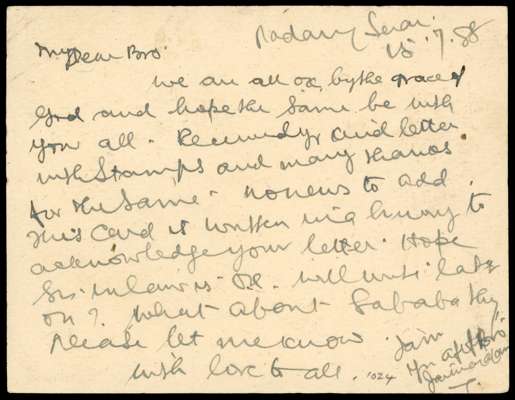 15.7.88
My Dear Bro.
we are all ok by the grace of
God and hope the same be with
you all. Received yr kind letter
with stamps and many thanks
for the same. No news to add
This card is written in a hurry to
acknowledge your letter. Hope
Sis in law is O.K. will write later
on? What about Sababathy
Please let me know. I am
with love to all. Yr aff Bro